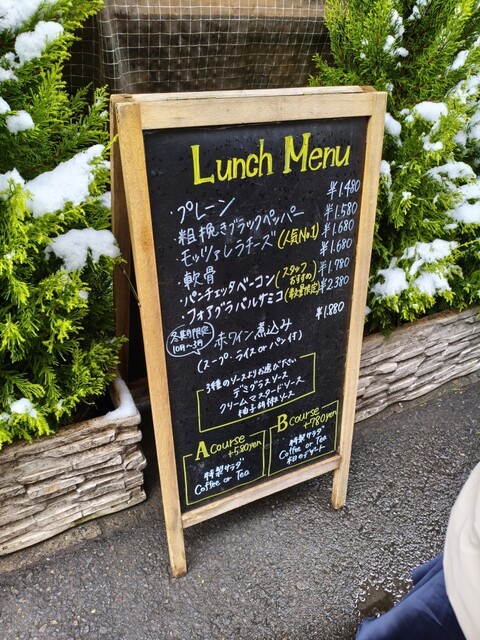 Lunch Menu
・プレーン ¥1.480
・粗挽きブラックペッパー ¥1.580
・モッツァレラチーズ(人気No.1) ¥1.680
・軟骨 ¥1.680
・パンチェッタベーコン(スタッフおすすめ) ¥1.780
・フォアグラバルサミコ(数量限定) ¥2.380
冬期限定 10月〜3月 赤ワイン煮込み ¥1.880
(スープ、ライス or パン付)
3種のソースよりお選び下さい
デミグラスソース
クリームマスタードソース
柚子胡椒ソース
A course
+580yen
特製サラダ
Coffee or Tea
B course
+780yen
特製サラダ
Coffee or Tea
和のデザート